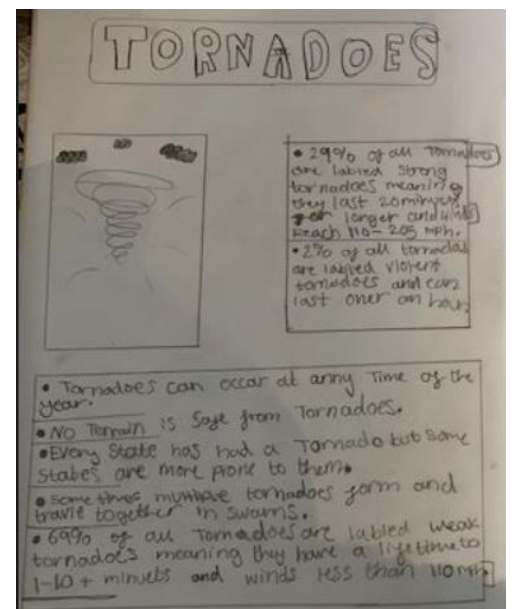 TORNADOES
• 29% of all Tornadoes
are labled strong
tornadoes meaning
they last 20 minyets
or longer and winds
Reach 110-205 mph.
• 2% of all tornados
are labled violent
tornadoes and can
last over an hour
• Tornadoes can occar at anny Time of the
year.
• No Terrain is Safe from Tornadoes.
• Every State has had a Tornado but some
States are more prone to them.
• some times multiple tornadoes form and
travle together in swarms.
• 69% of all Tornadoes are labled weak
tornadoes meaning they have a lifetime to
1-10 + minuets and winds less than 110 mph.